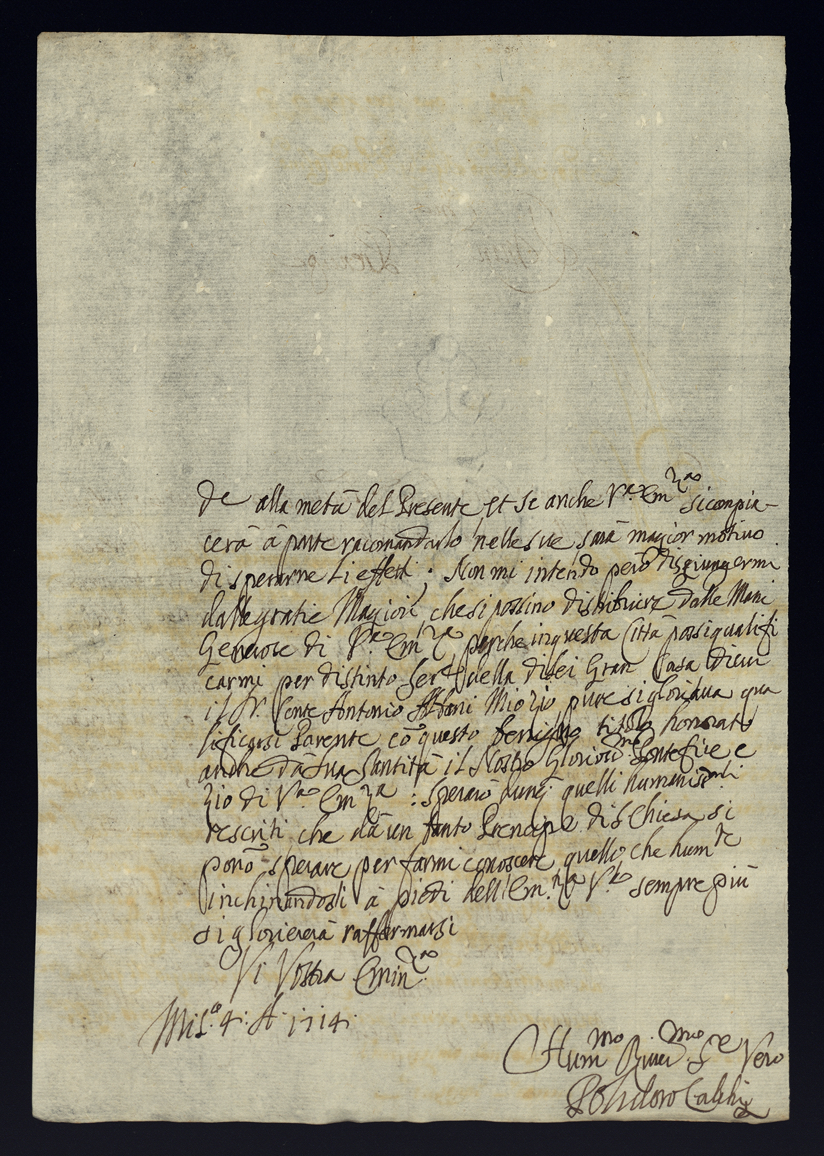 de alla metà del Presente et se anche V.ra Em.za si compia-
cerà à parte racomandarlo nelle sue sarà magior motivo
di sperarne li effetti; Non mi intendo però disgiungermi
dalle gratie Magiori, che si possino distribuire dalle Mani
Generose di V.ra Em.za perche in questa Città possi qualifi
carmi per distinto Ser.re della di lei Gran Casa di cui
il Sr. Conte Antonio Albani Mio Zio pure si gloriava qua
lificarsi Parente cō questo benigno titolo honorato
anche da Sua Santità il Nostro Glorios.mo Pontefice e
Zio di V.ra Em.za : sperarò dunq quelli humanis.mi
rescriti che da un tanto Prencipe di S Chiesa si
ponō sperare per farmi conoscere quello che hum.te
inchinandosi à piedi dell Em.za V.ra sempre più
si glorierà raffermarsi
Di Vostra Emin.za
Mil.o 4: A: 1714.
Hum.mo Se.re Vero
Polidoro Calchi